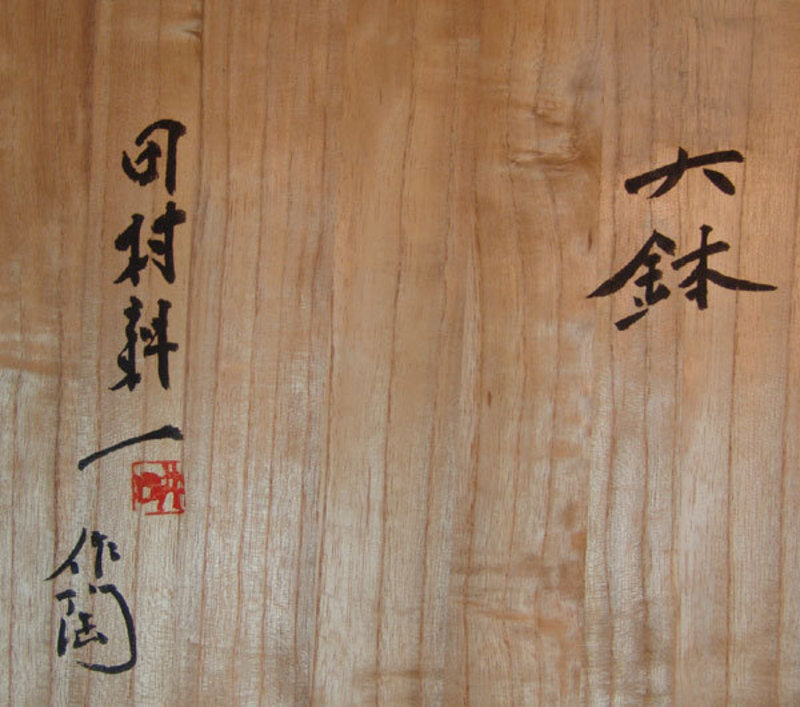 大鉢
田村耕一
作陶